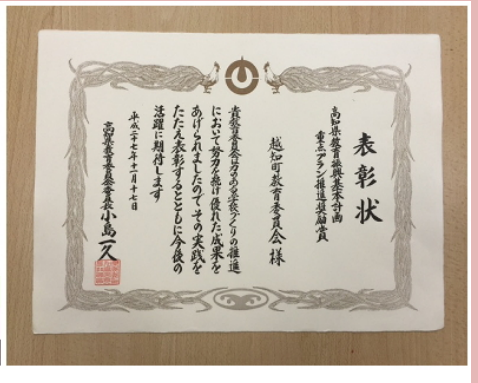 表彰状
高知県教育振興基本計画
重点プラン推進奨励賞
越知町教育委員会 様
貴教育委員会は力のある学校づくりの推進
において努力を続け優れた成果を
あげられましたのでその実践を
たたえ表彰するとともに今後の
活躍に期待します
平成二十七年十一月十七日
高知県教育委員会委員長 小島一久